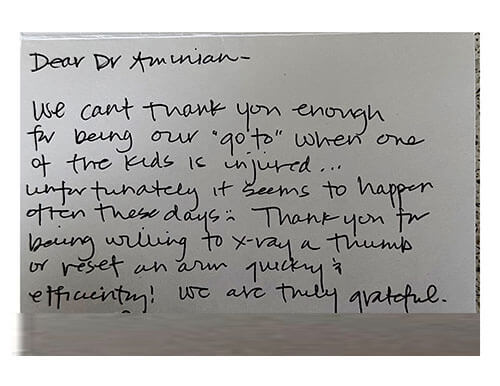 Dear Dr Aminian-
We cant thank you enough
for being our "go to" when one
of the kids is injured...
unfortunately it seems to happen
often these days :. Thank you for
being willing to x-ray a thumb
or reset an arm quickly &
efficiently! We are truly grateful.